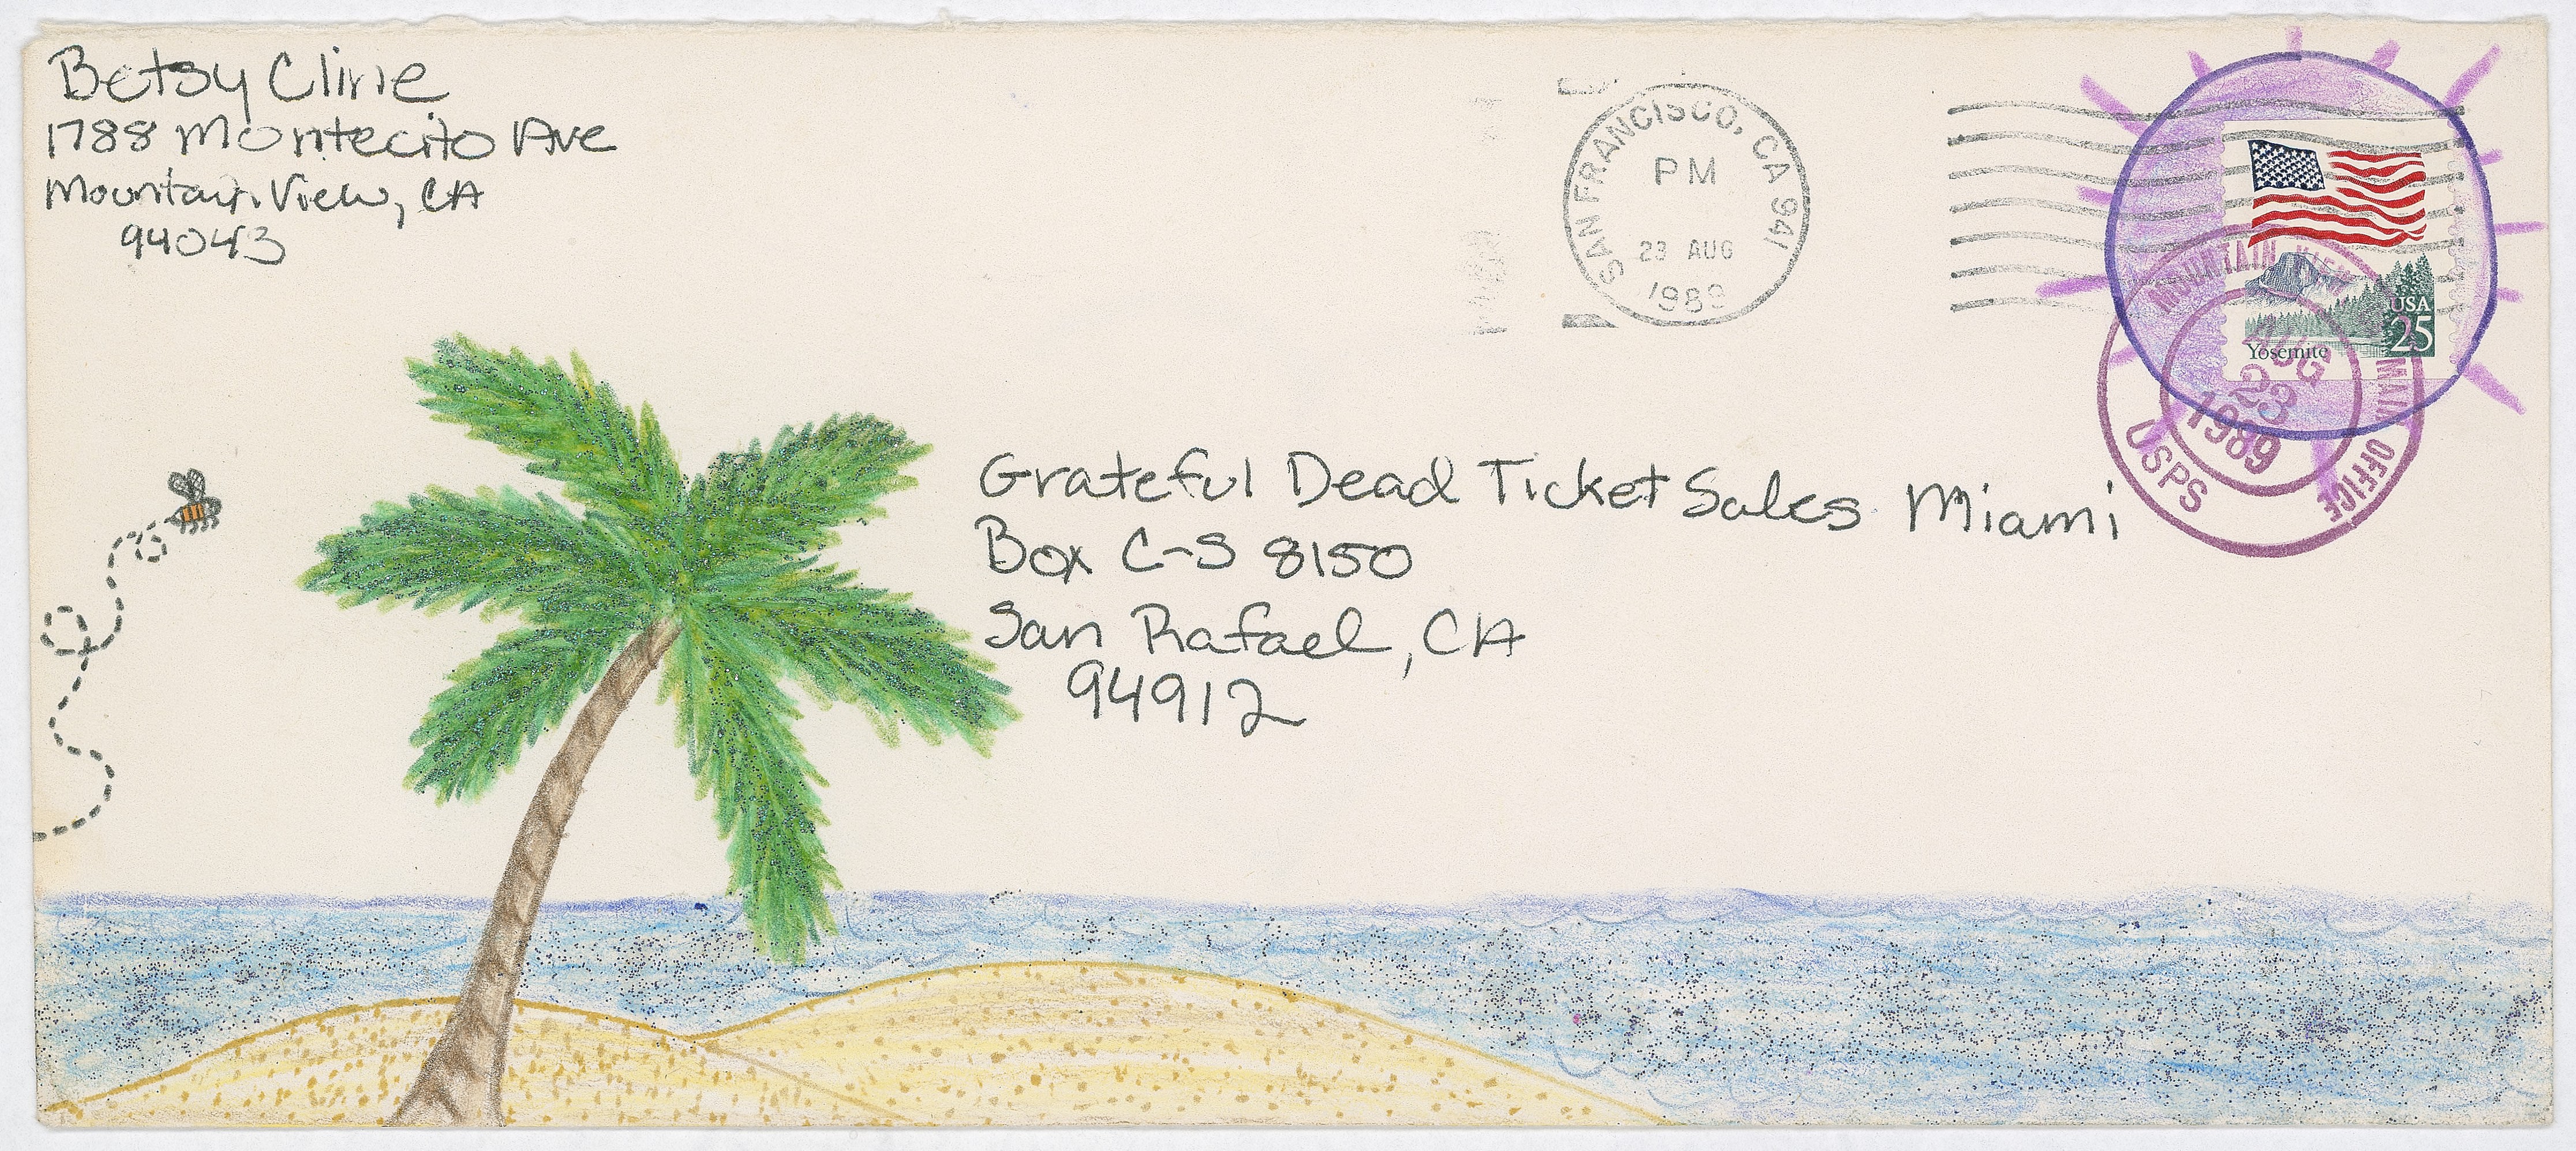 Betsy Cline
1788 Montecito Ave
Mountain View, CA
94043
SAN FRANCISCO, CA 941
PM
23 AUG
1989
USA
25
Yosemite
MOUNTAIN VIEW
MAIN OFFICE
USPS
AUG
23
1989
Grateful Dead Ticket Sales Miami
Box C-S 8150
San Rafael, CA
94912